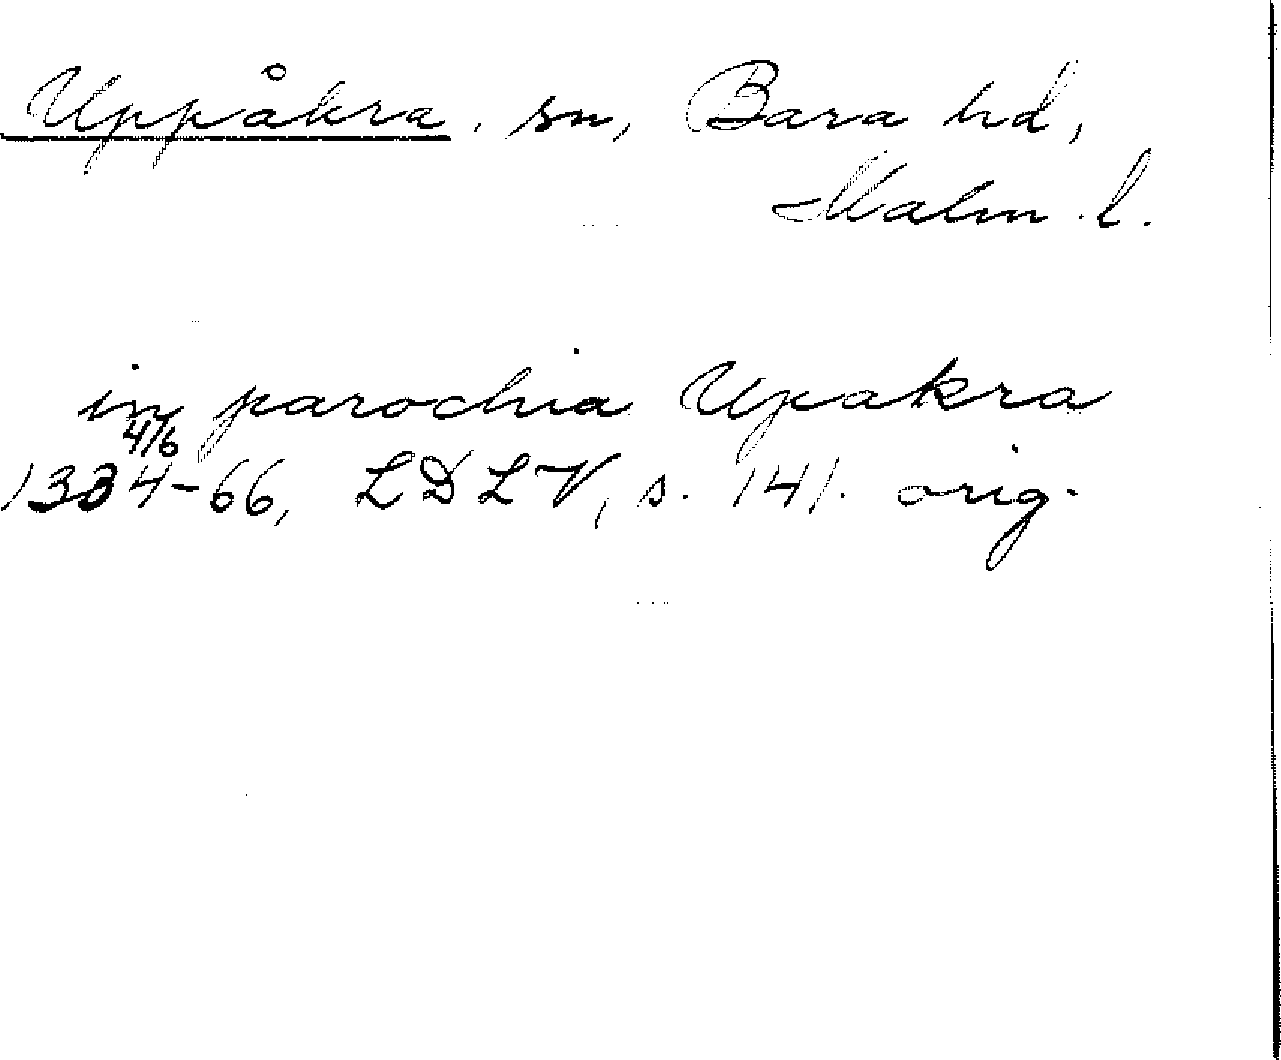 Uppåkra, sn, Bara hd,
Malm. l.
in parochia Upakra
4/6
1334-66, LDLV, s. 141. orig.